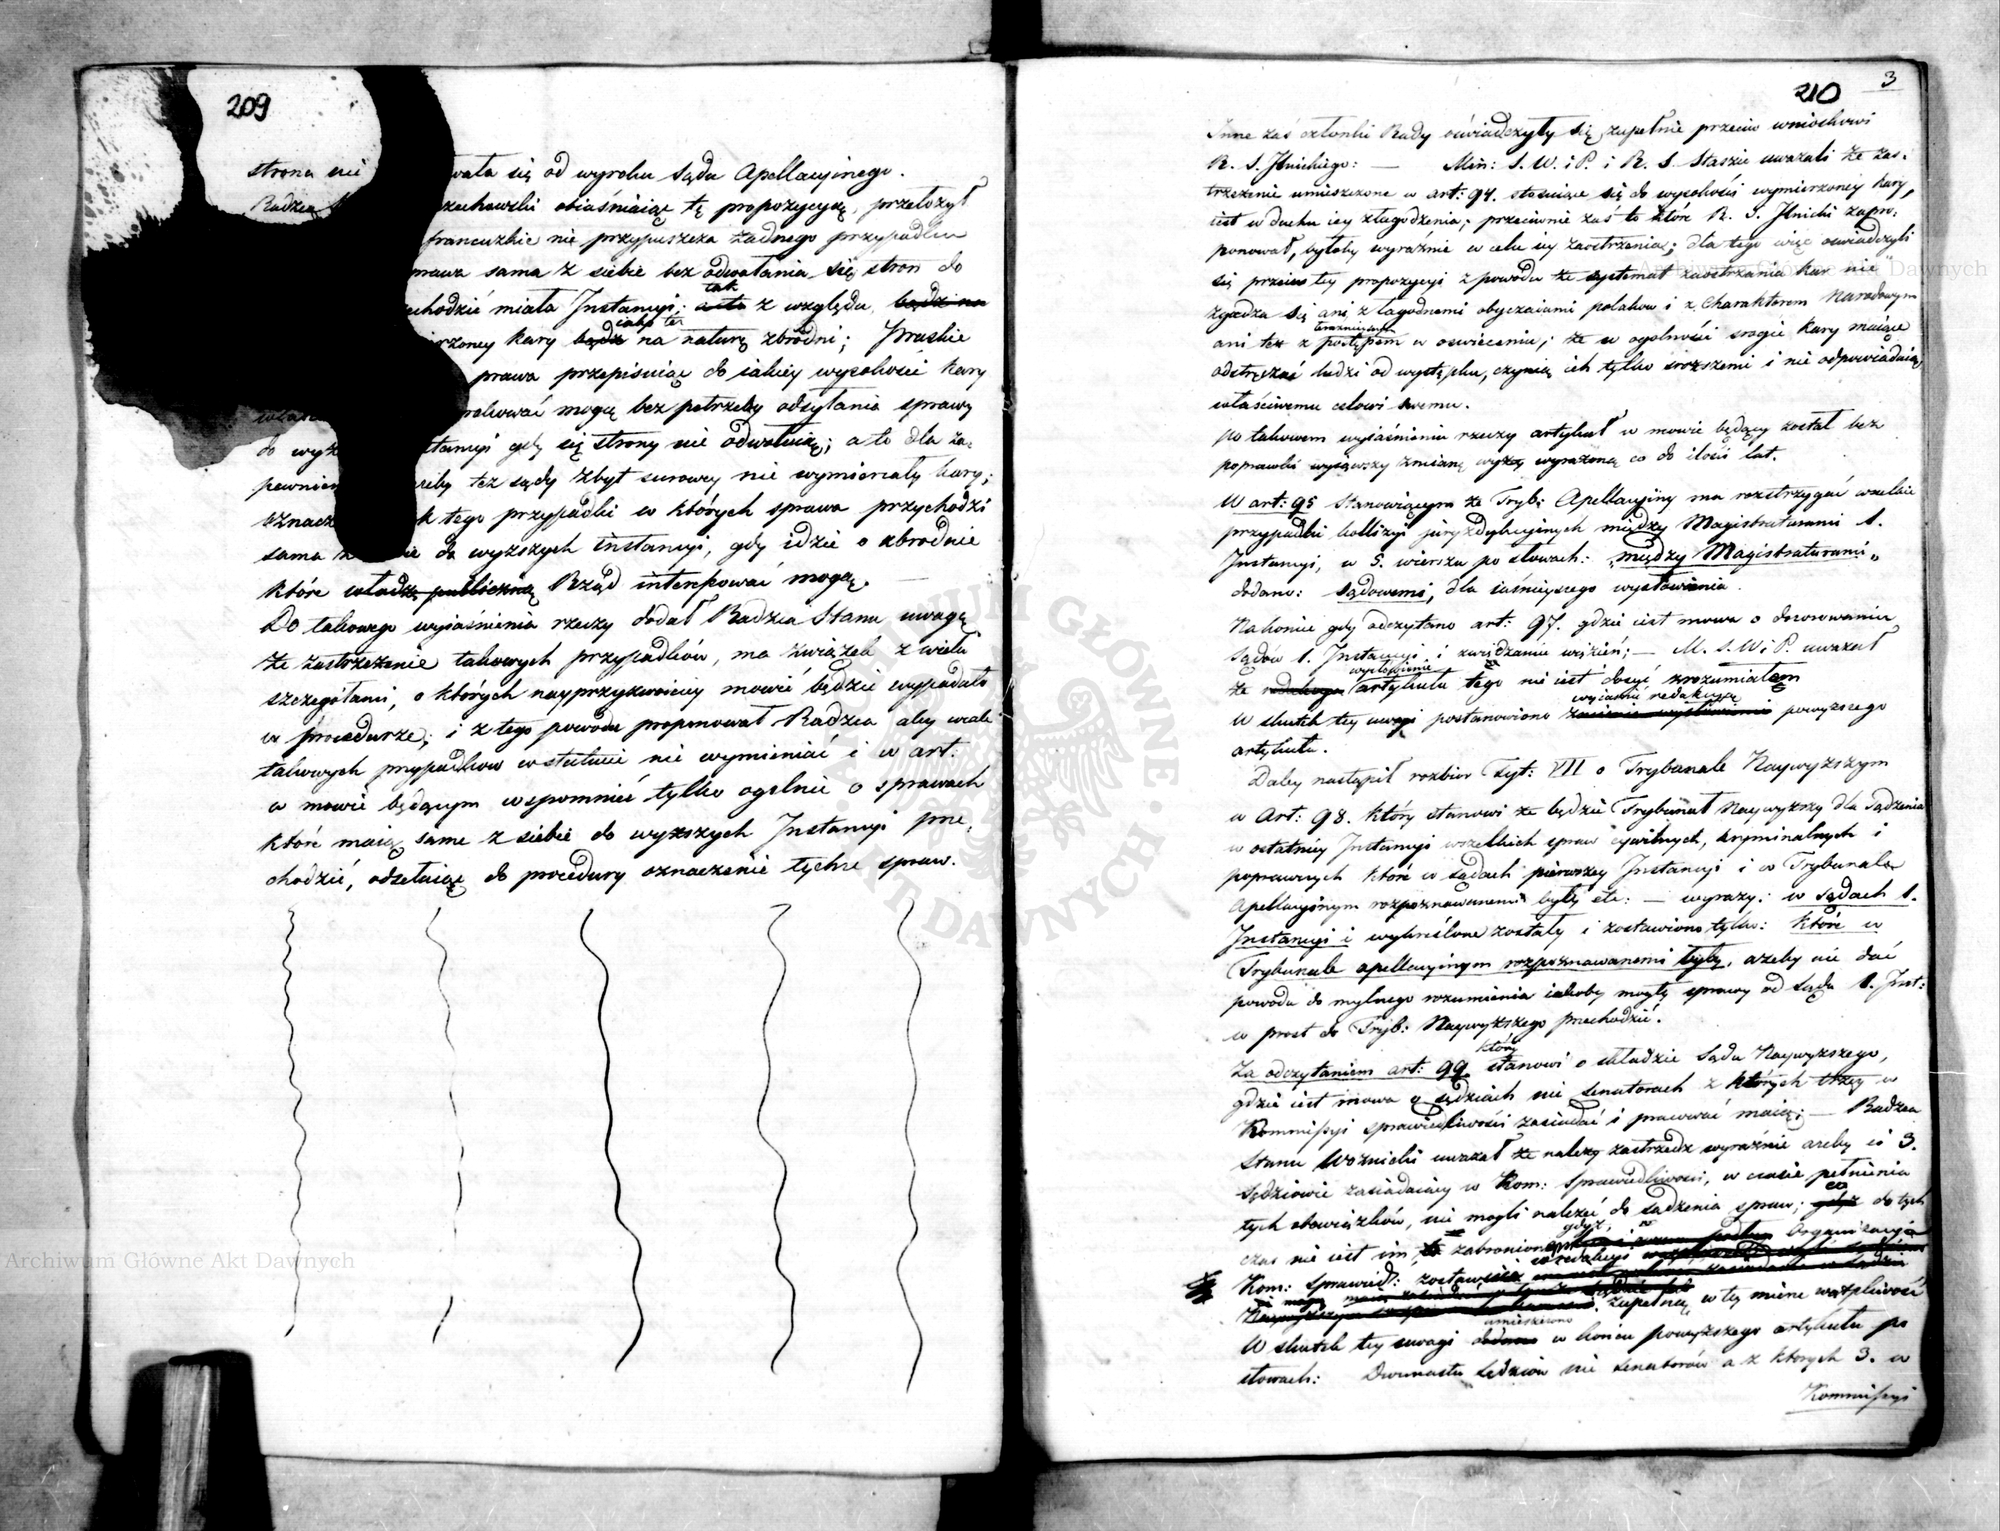 209
strona nie wała się od wyroku Sądu Apellacyinego.
Radzca zachowski obiaśniaiąc tę propozycyą, przełożył
francuzkie nie przypuszcza żadnego przypadku
prawa sama z siebie bez odwołania się stron do
chodzić miała Instancyi; tak z względu bądź na
rzoney kary bądź iako też na naturę zbrodni; Pruskie
prawa przepisuiąc do iakiey wysokości kary
rokować mogą bez potrzeby odsyłania sprawy
do wyż stancyi gdy się strony nie odwołuią; a to dla za=
pewnien żeby też sądy zbyt surowey nie wymierzały kary;
oznacz k tego przypadki w których sprawa przychodzi
sama z do wyższych instancyi, gdy idzie o zbrodnie
które władzę publiczną Rząd interesować mogą. —
Do takowego wyiaśnienia rzeczy dodał Radzca Stanu uwagę
że zastrzeżenie takowych przypadków, ma związek z wielu
szczegółami, o których nayprzyzwoiciey mówić będzie wypadało
w procedurze; i z tego powodu proponował Radzca aby wcale
takowych przypadkow w statucie nie wymieniać i w art:
w mowie będącym wspomnieć tylko ogolnie o sprawach
które maią same z siebie do wyższych Instancyi prze=
chodzić, odsełaiąc do procedury oznaczenie tychże spraw.
210
3
Inne zaś członki Rady oświadczyły się zupełnie przeciw wnioskowi
R. S. Ilnickiego: — Min: S. W. i P. i R. S. Staszic uważali że zas=
trzeżenie umieszczone w art: 94. stosuiące się do wysokości wymierzoney kary,
iest w duchu iey złagodzenia; przeciwnie zaś to które R. S. Ilnicki zapro=
ponował, byłoby wyraźnie w celu iey zaostrzenia; dla tego więc oświadczyli
się przeciw tey propozycyi z powodu że systemat zaostrzania kar nie
zgadza się ani z łagodnemi obyczaiami polaków i z charakterem Narodowym
ani też z postępem w oświeceniu; że w ogolności srogie kary maiące
odstręczać ludzi od występku, czynią ich tylko sroższemi i nie odpowiadaią
właściwemu celowi swemu.
po takowem wyiaśnieniu rzeczy artykuł w mowie będący został bez
poprawki wyiąwszy zmianę wyżey wyrażoną co do ilości lat.
W art: 95 stanowiącym że Tryb: Apellacyiny ma rozstrzygać wszelkie
przypadki kollizyi juryzdykcyinych między Magistraturami 1.
Instancyi, w 5. wierszu po słowach: "między Magistraturami"
dodano: sądowemi, dla iaśnieyszego wysłowienia.
Nakoniec gdy odczytano art: 97. gdzie iest mowa o dozorowaniu
Sądów 1. Instancyi i zwiedzanie więzień; — M. S. W. i P. uważał
że wysłowienie artykułu tego nie iest dosyć zrozumiałem
W skutek tey uwagi postanowiono wyiaśnić redakcyą powyższego
artykułu.
Daley nastąpił rozbiór Tyt: VII o Trybunale Naywyższym
w Art: 98. który stanowi że będzie Trybunał Naywyższy dla sądzenia
w ostatniey Instancyi wszelkich spraw cywilnych, kryminalnych i
poprawczych które w sądach pierwszey Instancyi i w Trybunale
Apellacyinym rozpoznawanemi były etc: — wyrazy: w sądach 1.
Instancyi i wykreślone zostały i zostawiono tylko: które w
Trybunale apellacyinym rozpoznawanemi były, ażeby nie dać
powodu do mylnego rozumienia iakoby mogły sprawy od Sądu 1. Inst:
w prost do Tryb: Naywyższego przechodzić.
Za odczytaniem art: 99. który stanowi o składzie Sądu Naywyższego,
gdzie iest mowa o sędziach nie Senatorach z których trzey w
Kommissyi sprawiedliwości zasiadać i pracować maią; — Radzca
Stanu Woźnicki uważał że należy zastrzedz wyraźnie ażeby ci 3.
Sędziowie zasiadaiący w Kom: Sprawiedliwości, w czasie pełnienia
tych obowiązków, nie mogli należeć do sądzenia spraw; co do tych
czas nie iest im zabronione gdyż Organizacyia
Kom: Sprawied: zostawuie
zupełną w tey mierze wątpliwość
W skutek tey uwagi umieszczono w końcu powyższego artykułu po
słowach: Dwunastu Sędziów nie Senatorów a z których 3. w
Kommissyi
ARCHIWUM GŁÓWNE AKT DAWNYCH
Archiwum Główne Akt Dawnych
Archiwum Główne Akt Dawnych